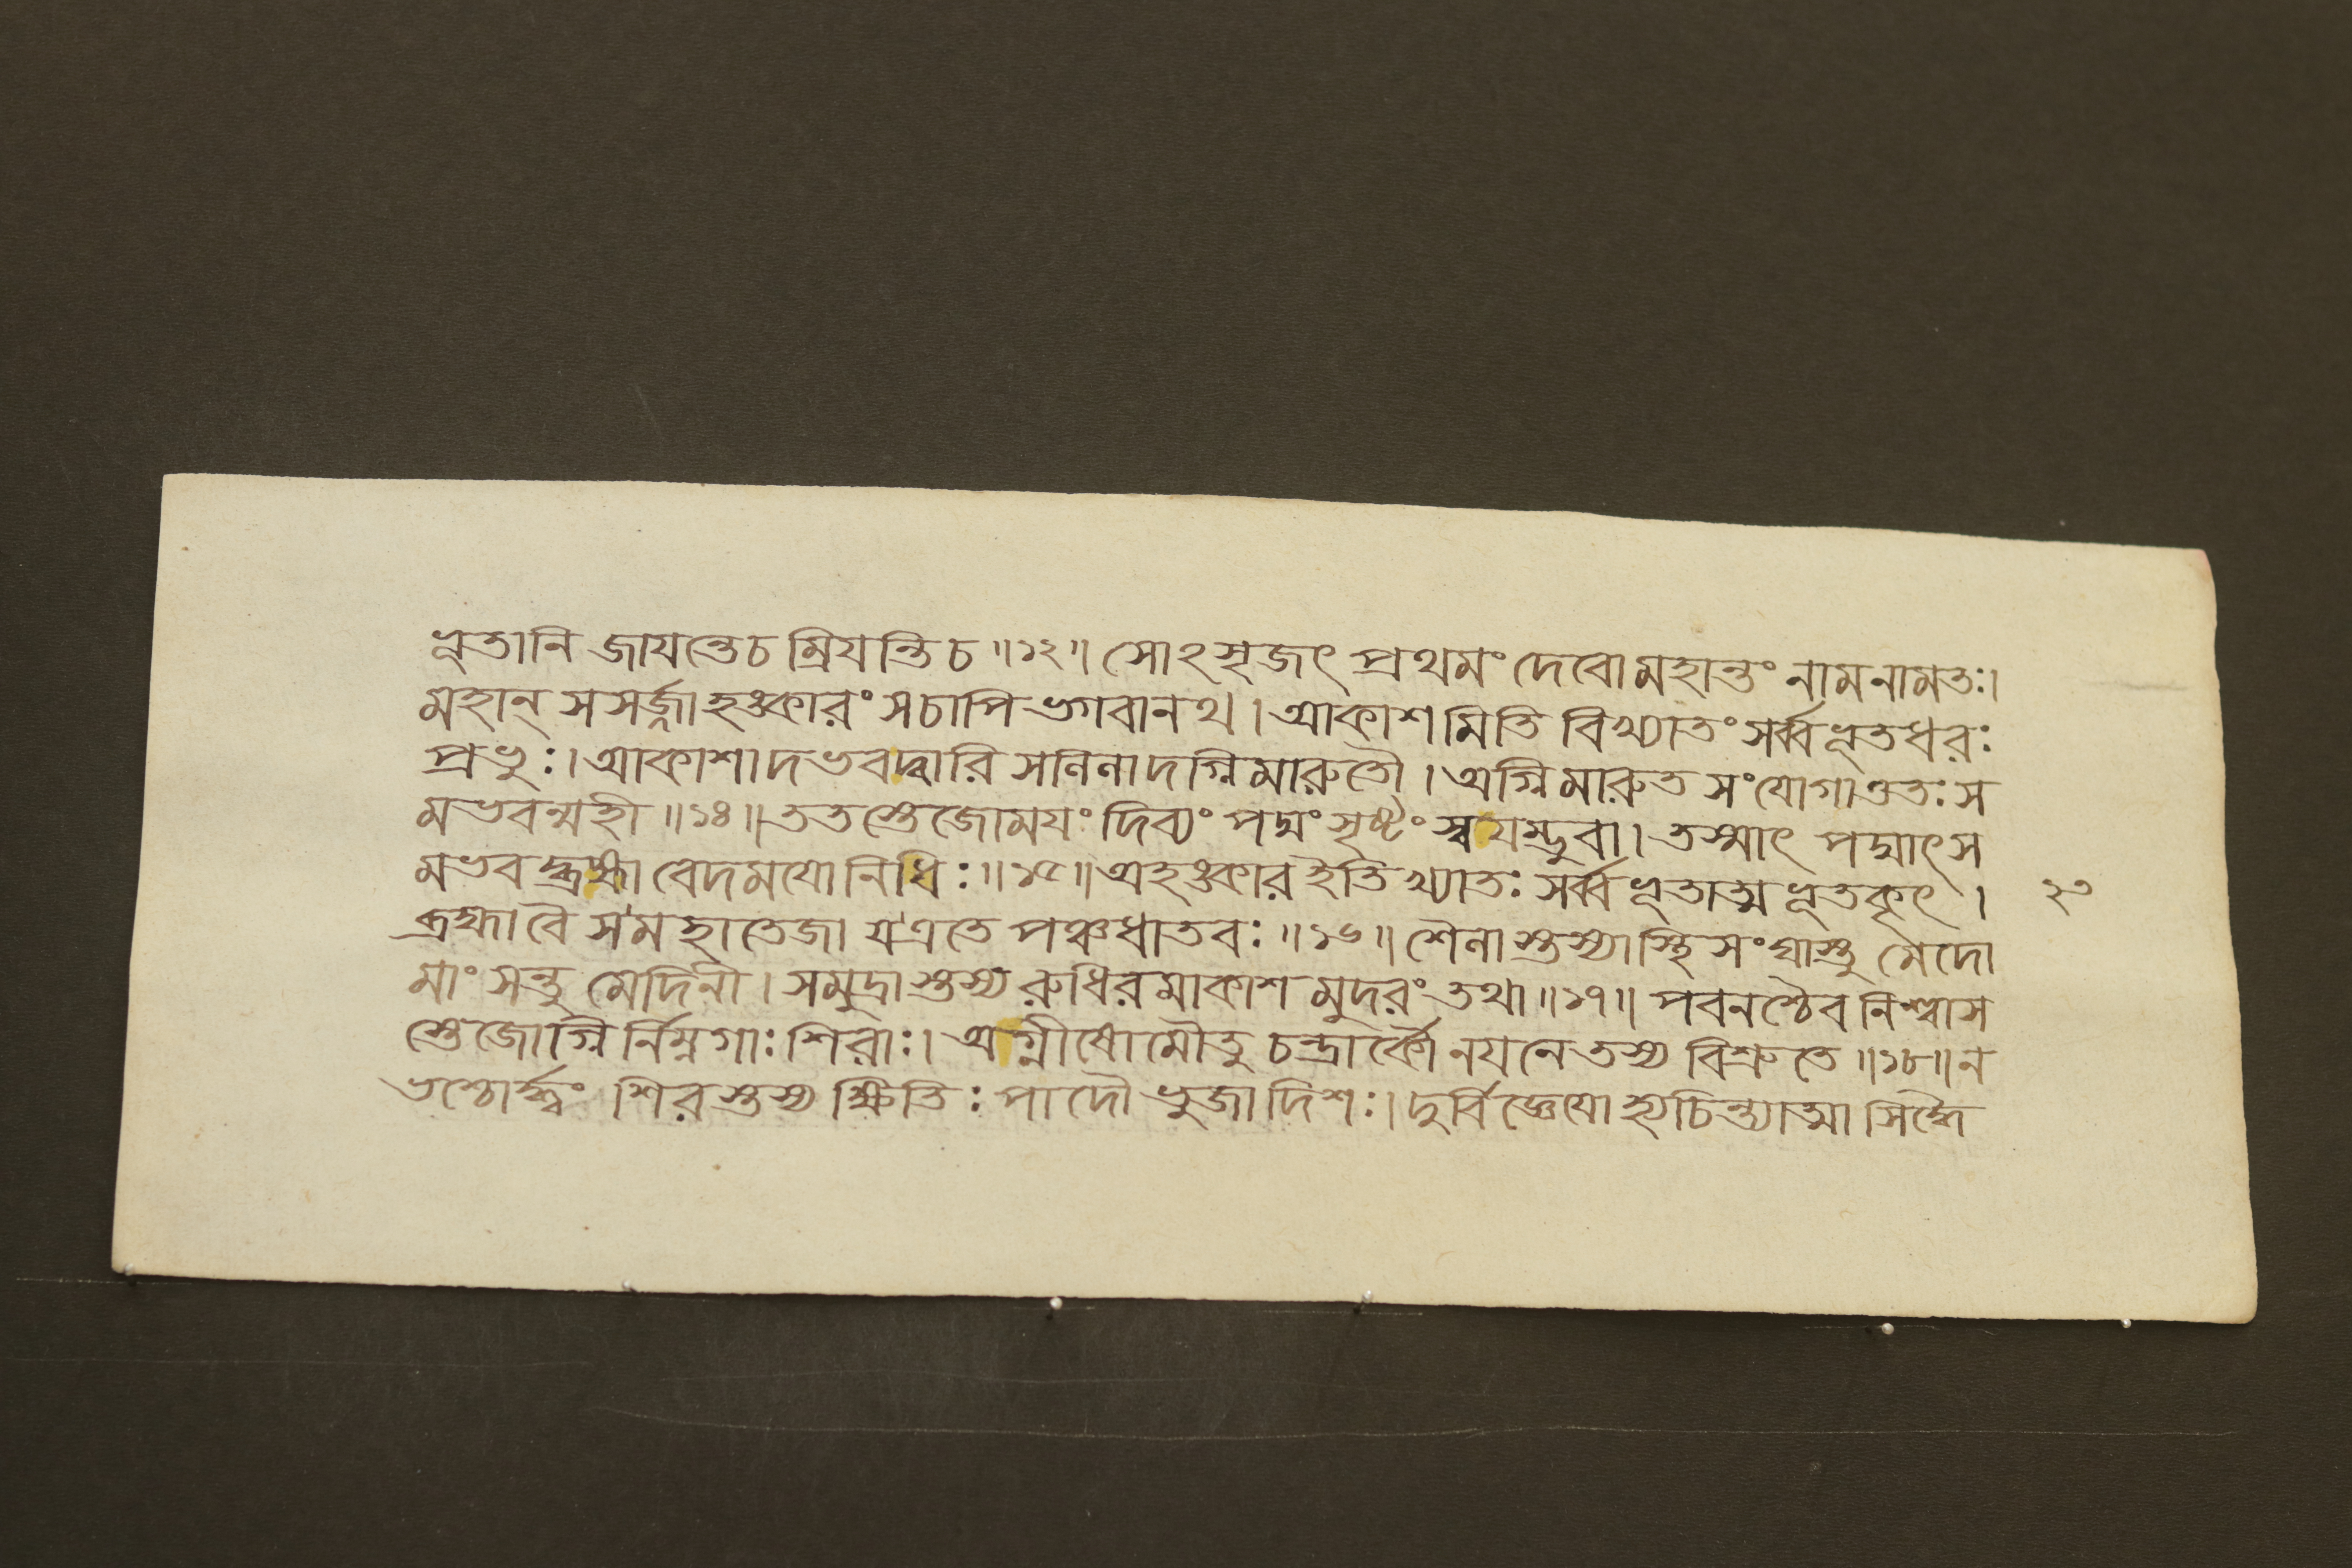 ভূতানি জাযন্তেচ ম্রিযন্তি চ ॥১২॥ সোঽসৃজৎ প্রথমং দেবো মহান্তং নাম নামতঃ।
মহান্ সসর্জ্জাহঙ্কারং সচাপি ভগবানথ । আকাশমিতি বিখ্যাতং সর্ব্বভূতধরঃ
প্রভুঃ। আকাশাদভবদ্বারি সলিলাদগ্নিমারুতৌ । অগ্নিমারুত সংযোগাত্ততঃ স
মভবন্মহী ॥১৪॥ ততস্তেজোমযং দিব্যং পদ্মং সৃষ্টং স্বযম্ভুবা। তস্মাৎ পদ্মাৎ স
মভবদ্ব্রহ্মা বেদমযো নিধিঃ ॥১৫॥ অহঙ্কার ইতি খ্যাতঃ সর্ব্বভূতাত্মভূতকৃৎ । ২৩
ব্রহ্মা বৈ স মহাতেজা য এতে পঞ্চধাতবঃ ॥১৬॥ শৈলাস্তস্যাস্থিসংঘাস্তু মেদো
মাংসন্তু মেদিনী। সমুদ্রাস্তস্য রুধিরমাকাশমুদরং তথা ॥১৭॥ পবনশ্চৈব নিশ্বাস
স্তেজোগ্নির্নিম্নগাঃ শিরাঃ। অগ্নীষোমৌতু চন্দ্রার্কৌ নযনে তস্য বিশ্রুতে ॥১৮॥ ন
ভশ্চোর্দ্ধ্বং শিরস্তস্য ক্ষিতিঃ পাদৌ ভুজা দিশঃ। দুর্বিজ্ঞেযো হ্যচিন্ত্যাত্মা সিদ্ধৈ